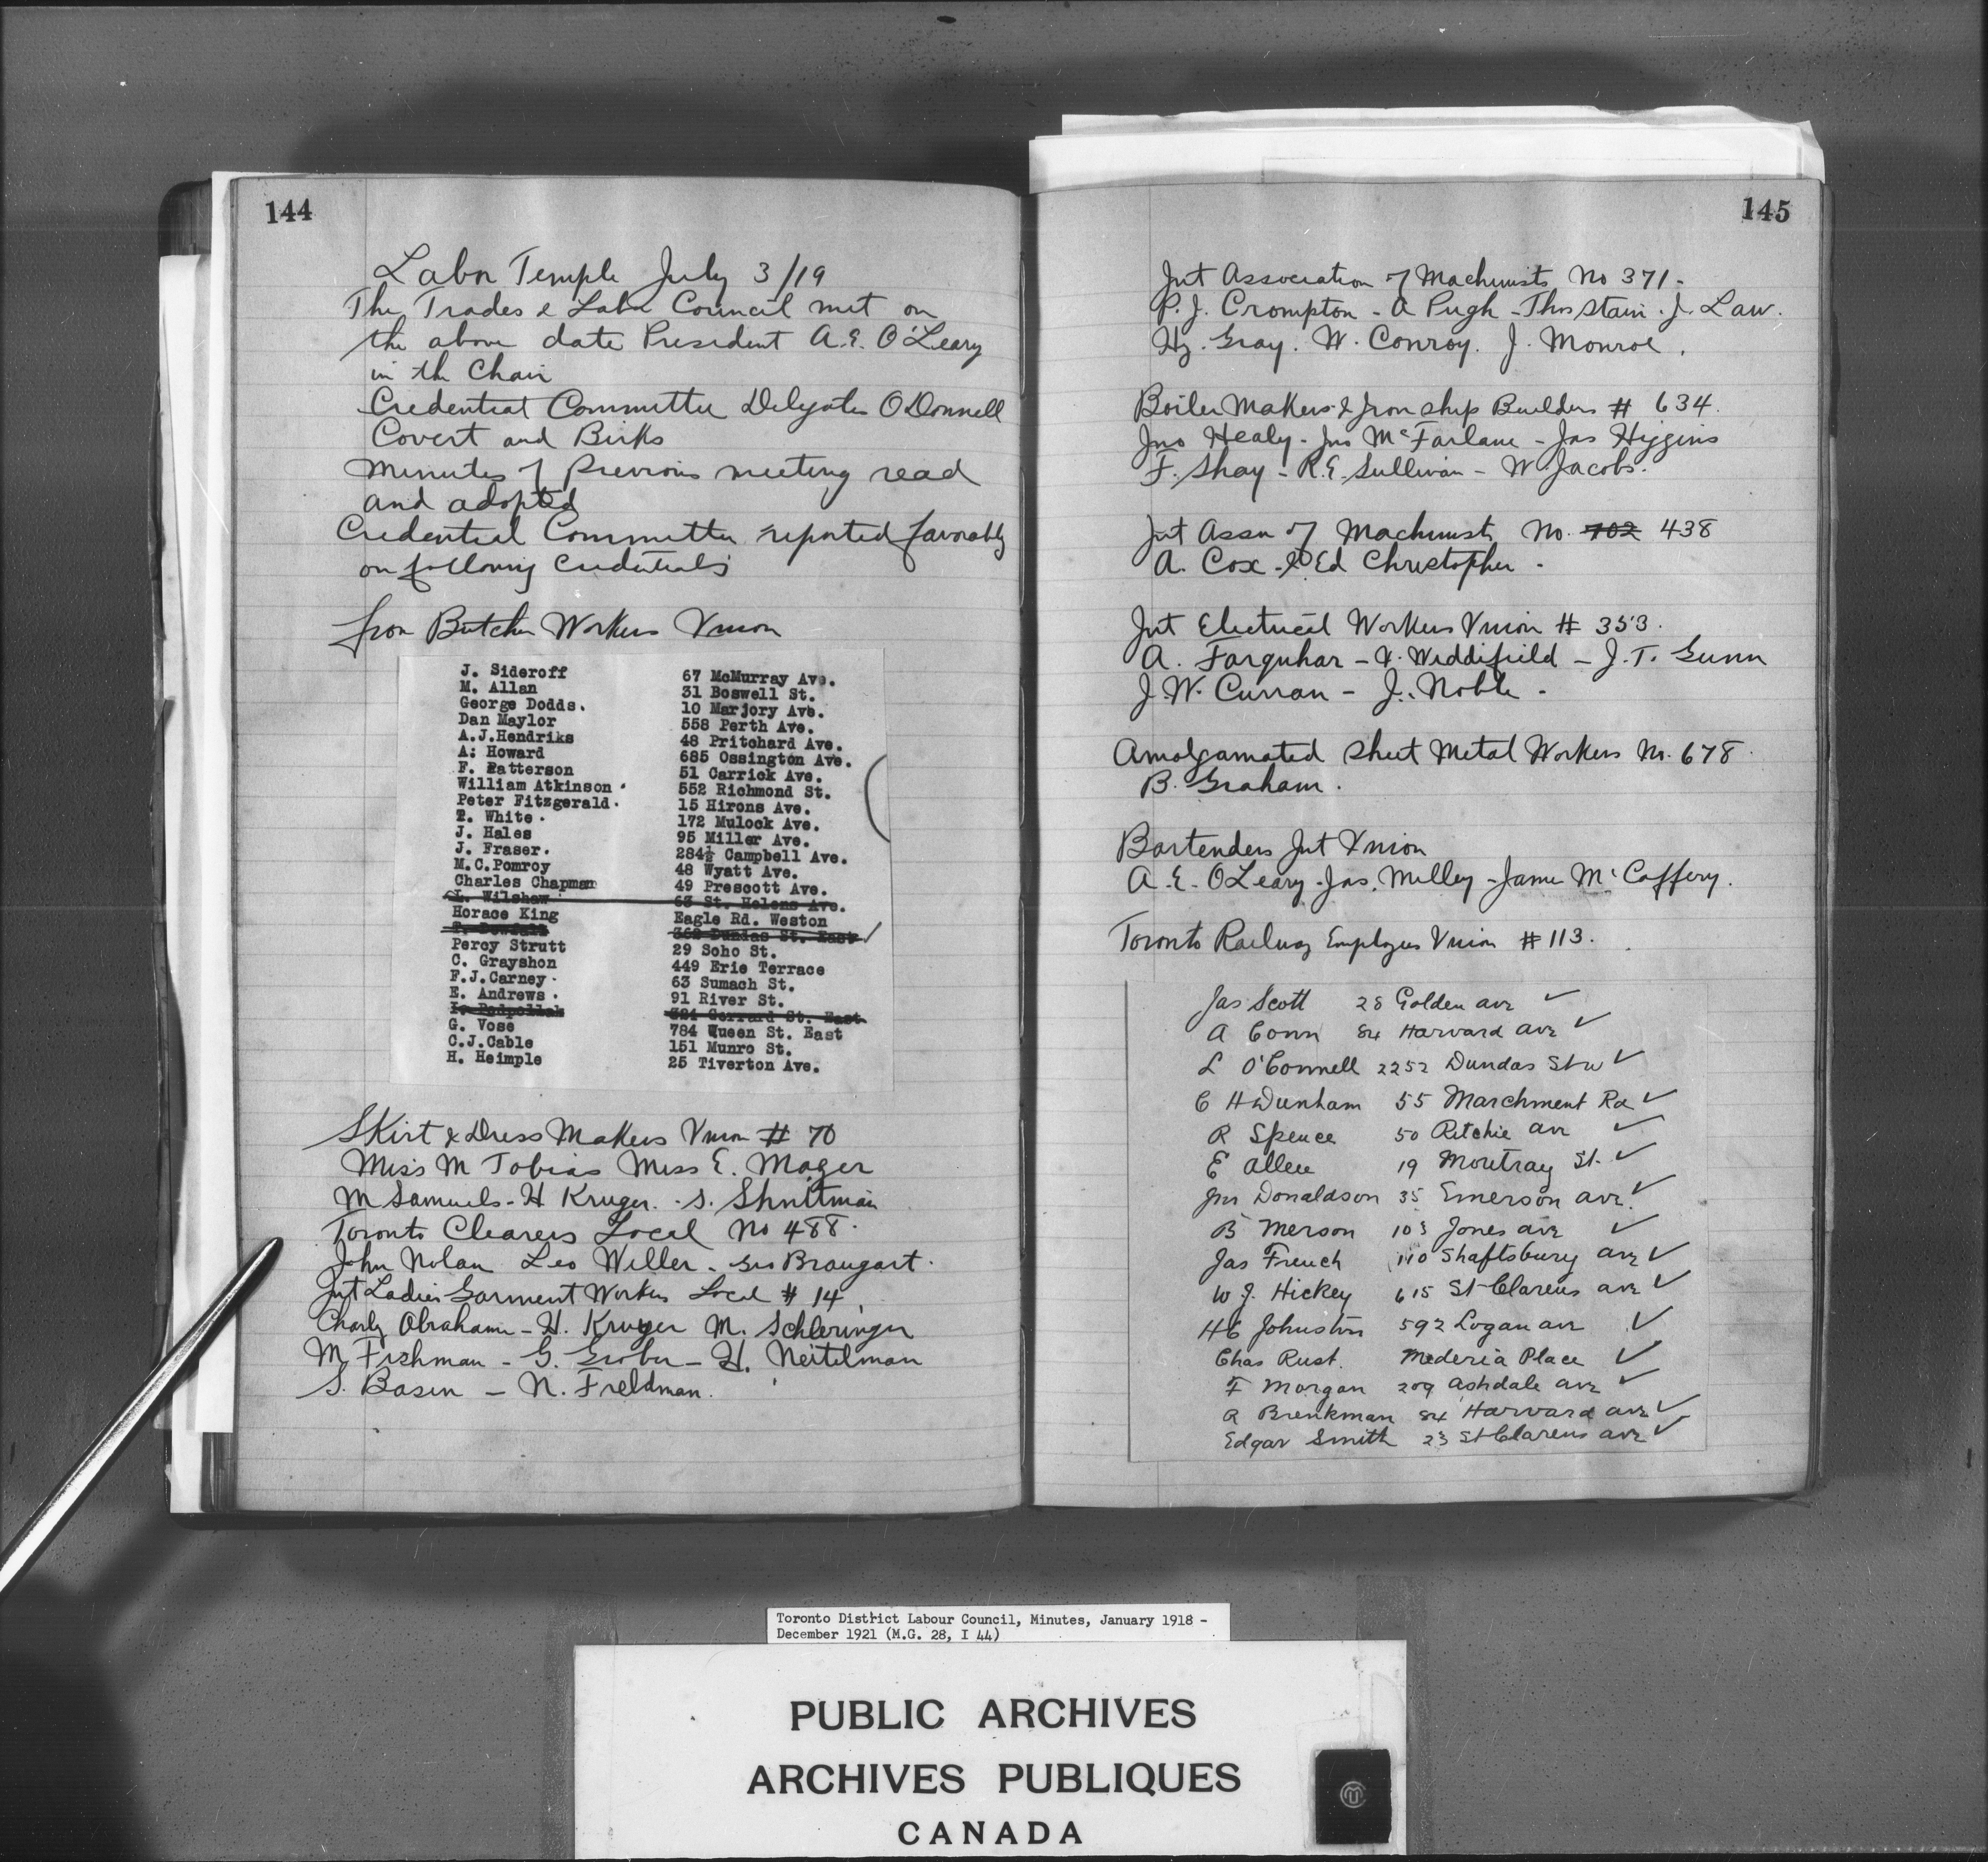 144
Labor Temple July 3/19
The Trades & Labor Council met on
the above date President A.E. O'Leary
in the Chair
Credential Committee Delegates O'Donnell
Covert and Birks
Minutes of previous meeting read
and adopted
Credential Committee reported favorably
on following Credentials
from Butcher Workers Union
J. Sideroff 67 McMurray Ave.
M. Allan 31 Boswell St.
George Dodds. 10 Marjory Ave.
Dan Maylor 558 Perth Ave.
A.J.Hendriks 48 Pritchard Ave.
A: Howard 685 Ossington Ave.
F. Patterson 51 Carrick Ave.
William Atkinson 552 Richmond St.
Peter Fitzgerald. 15 Hirons Ave.
T. White. 172 Mulock Ave.
J. Hales 95 Miller Ave.
J. Fraser. 284½ Campbell Ave.
M.C.Pomroy 48 Wyatt Ave.
Charles Chapman 49 Prescott Ave.
L. Wilshaw 63 St. Helens Ave.
Horace King Eagle Rd. Weston
362 Dundas St. East ✓
Percy Strutt 29 Soho St.
C. Grayshon 449 Erie Terrace
F.J.Carney. 63 Sumach St.
E. Andrews. 91 River St.
Gerrard St. East
G. Vose 784 Queen St. East
C.J.Cable 151 Munro St.
H. Heimple 25 Tiverton Ave.
Skirt & Dress Makers Union # 70
Miss M Tobias Miss E. Mager
M Samuels - H Kruger. - S. Shnitman
Toronto Cleaners Local No 488.
John Nolan Leo Weller - Geo Braugart.
Int Ladies Garment Workers Local # 14
Charly Abrahams - H. Kruger M. Schleringer
M Fishman - G. Gruber - H. Neitelman
S. Basen - N. Freldman.
145
Int Association of Machinists No 371 -
P.J. Crompton - A Pugh - Thos Stain. J. Law.
Hy. Gray. W. Conroy. J. Monroe.
Boiler Makers & Iron Ship Builders # 634.
Jno Healy - Jno McFarlane - Jas Higgins
F. Shay - R.E. Sullivan - W. Jacobs.
Int Assn of Machinists No. 702 438
A. Cox - & Ed Christopher -
Int Electrical Workers Union # 353.
A. Farquhar - V. Widdifield - J.T. Gunn
J.W. Curran - J. Noble -
Amalgamated Sheet Metal Workers No. 678.
B. Graham.
Bartenders Int Union
A.E. O'Leary - Jas. Melley - Jame McCaffery.
Toronto Railway Employes Union # 113.
Jas Scott 28 Golden ave ✓
A Conn 84 Harvard ave ✓
L O'Connell 2252 Dundas St w ✓
C H Dunham 55 Marchment Rd ✓
R Spence 50 Ritchie ave ✓
E Allen 19 Moutray St. ✓
Jno Donaldson 35 Emerson ave. ✓
B Merson 103 Jones ave ✓
Jas French 110 Shaftsbury ave ✓
W J. Hickey 615 St Clarens ave ✓
H C Johnston 592 Logan ave ✓
Chas Rust. Mederia Place ✓
F Morgan 209 Ashdale ave ✓
R Brenkman 84 Harvard ave ✓
Edgar Smith 23 St Clarens ave ✓
Toronto District Labour Council, Minutes, January 1918 -
December 1921 (M.G. 28, I 44)
PUBLIC ARCHIVES
ARCHIVES PUBLIQUES
CANADA